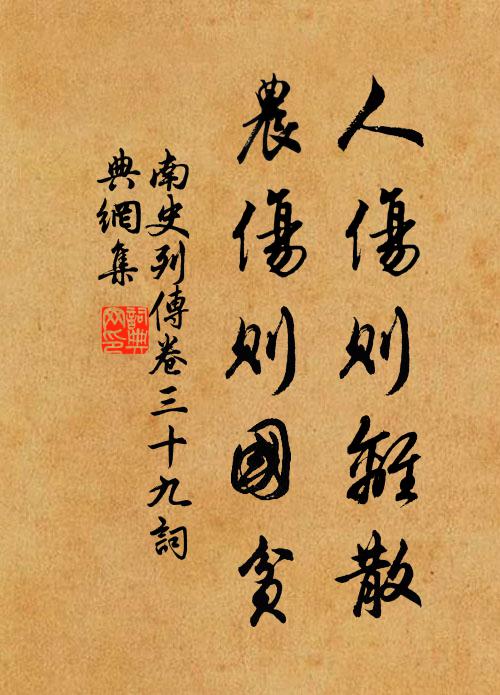 人傷則離散
農傷則國貧
南史列傳卷三十九詞
典網集
詞典網印